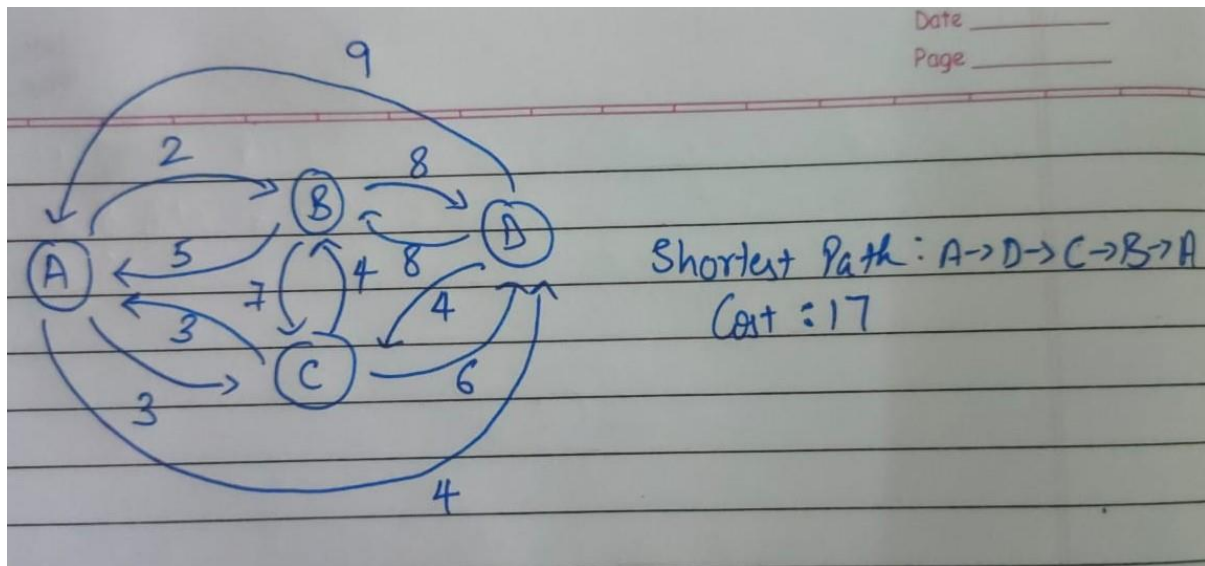 Date
Page
9
2
8
B
D
5
8
A
7
4
4
3
C
6
3
4
Shortest Path : A→D→C→B→A
Cost : 17